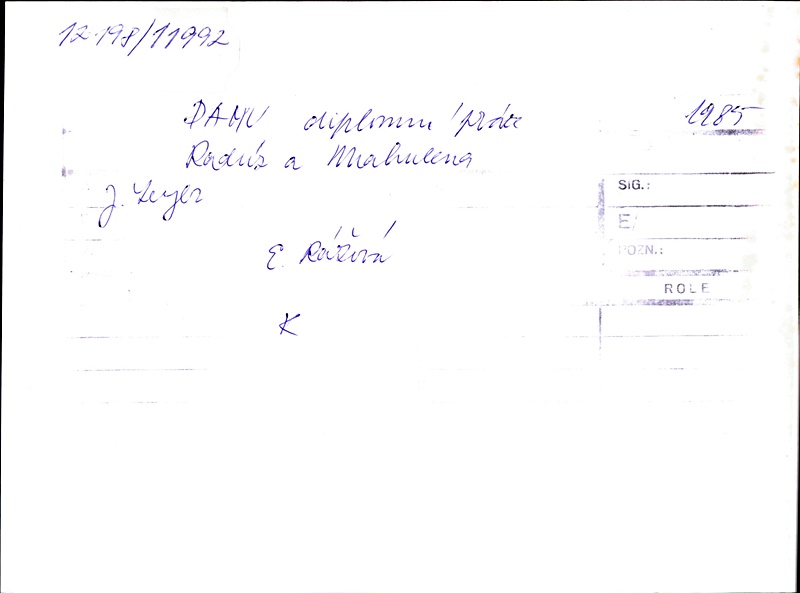 12-198/11992
DAMU diplomní práce
1985
Radúz a Mahulena
J. Zeyer
SIG.:
E
POZN.:
E. Rážová
ROLE
K